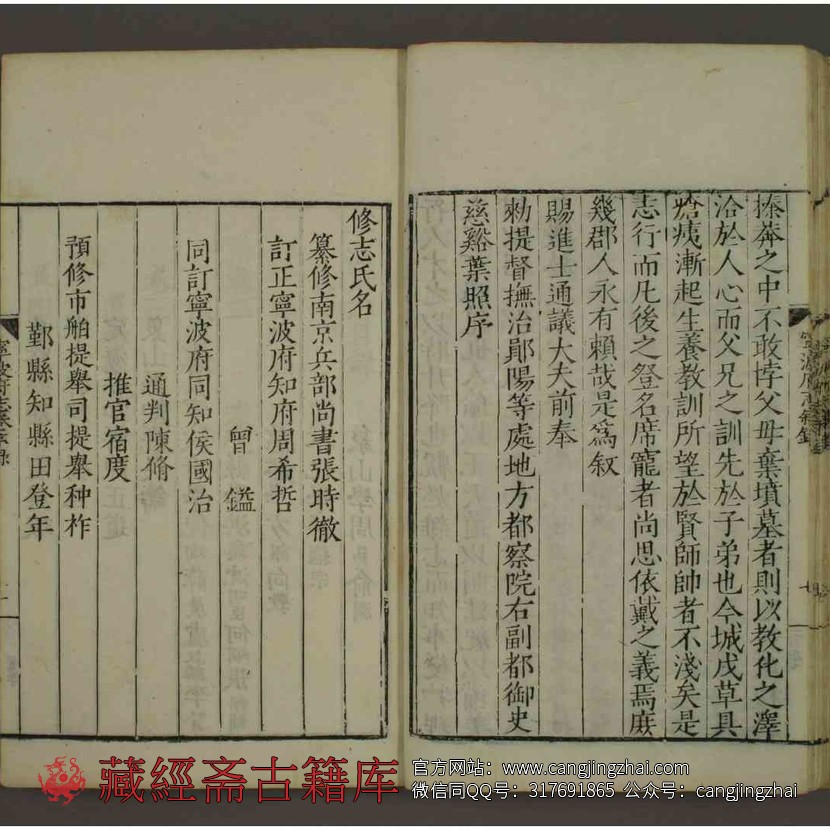 榛莽之中不敢悖父母棄墳墓者則以教化之澤
洽於人心而父兄之訓先於子弟也今城戍草具
瘡痍漸起生養教訓所望於賢師帥者不淺矣是
志行而凡後之登名席寵者尚思依戴之義焉庶
幾郡人永有賴哉是為叙
賜進士通議大夫前奉
勑提督撫治鄖陽等處地方都察院右副都御史
慈谿葉照序
修志氏名
纂修南京兵部尚書張時徹
訂正寧波府知府周希哲
曾鎰
同訂寧波府同知侯國治
通判陳脩
推官宿度
預修市舶提舉司提舉种柞
鄞縣知縣田登年
藏經斋古籍库
官方网站：www.cangjingzhai.com
微信同QQ号：317691865 公众号：cangjingzhai